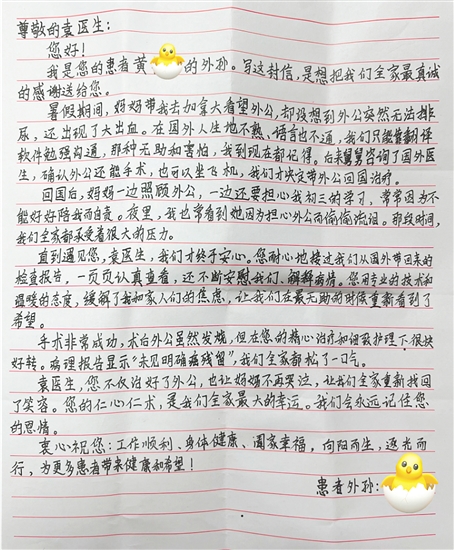 尊敬的袁医生：
您好！
我是您的患者黄的外孙。写这封信，是想把我们全家最真诚
的感谢送给您。
暑假期间，妈妈带我去加拿大看望外公，却没想到外公突然无法排
尿，还出现了大出血。在国外人生地不熟、语言也不通，我们只能靠翻译
软件勉强沟通，那种无助和害怕，我到现在都记得。后来舅舅咨询了国外医
生，确认外公还能手术，也可以坐飞机，我们才决定带外公回国治疗。
回国后，妈妈一边照顾外公，一边还要担心我初三的学习，常常因为不
能好好陪我而自责。夜里，我也常看到她因为担心外公而偷偷流泪。那段时间，
我们全家都承受着很大的压力。
直到遇见您，袁医生，我们才终于安心。您耐心地接过我们从国外带回来的
检查报告，一页页认真查看，还不断安慰我们、解释病情。您用专业的技术和
温暖的态度，缓解了我和家人们的焦虑，让我们在最无助的时候重新看到了
希望。
手术非常成功，术后外公虽然发烧，但在您的精心治疗和细致护理下很快
好转。病理报告显示“未见明确癌残留”，我们全家都松了一口气。
袁医生，您不仅治好了外公，也让妈妈不再哭泣，让我们全家重新找回
了笑容。您的仁心仁术，是我们全家最大的幸运。我们会永远记住您
的恩情。
衷心祝您：工作顺利、身体健康、阖家幸福，向阳而生，逐光而
行，为更多患者带来健康和希望！
患者外孙：